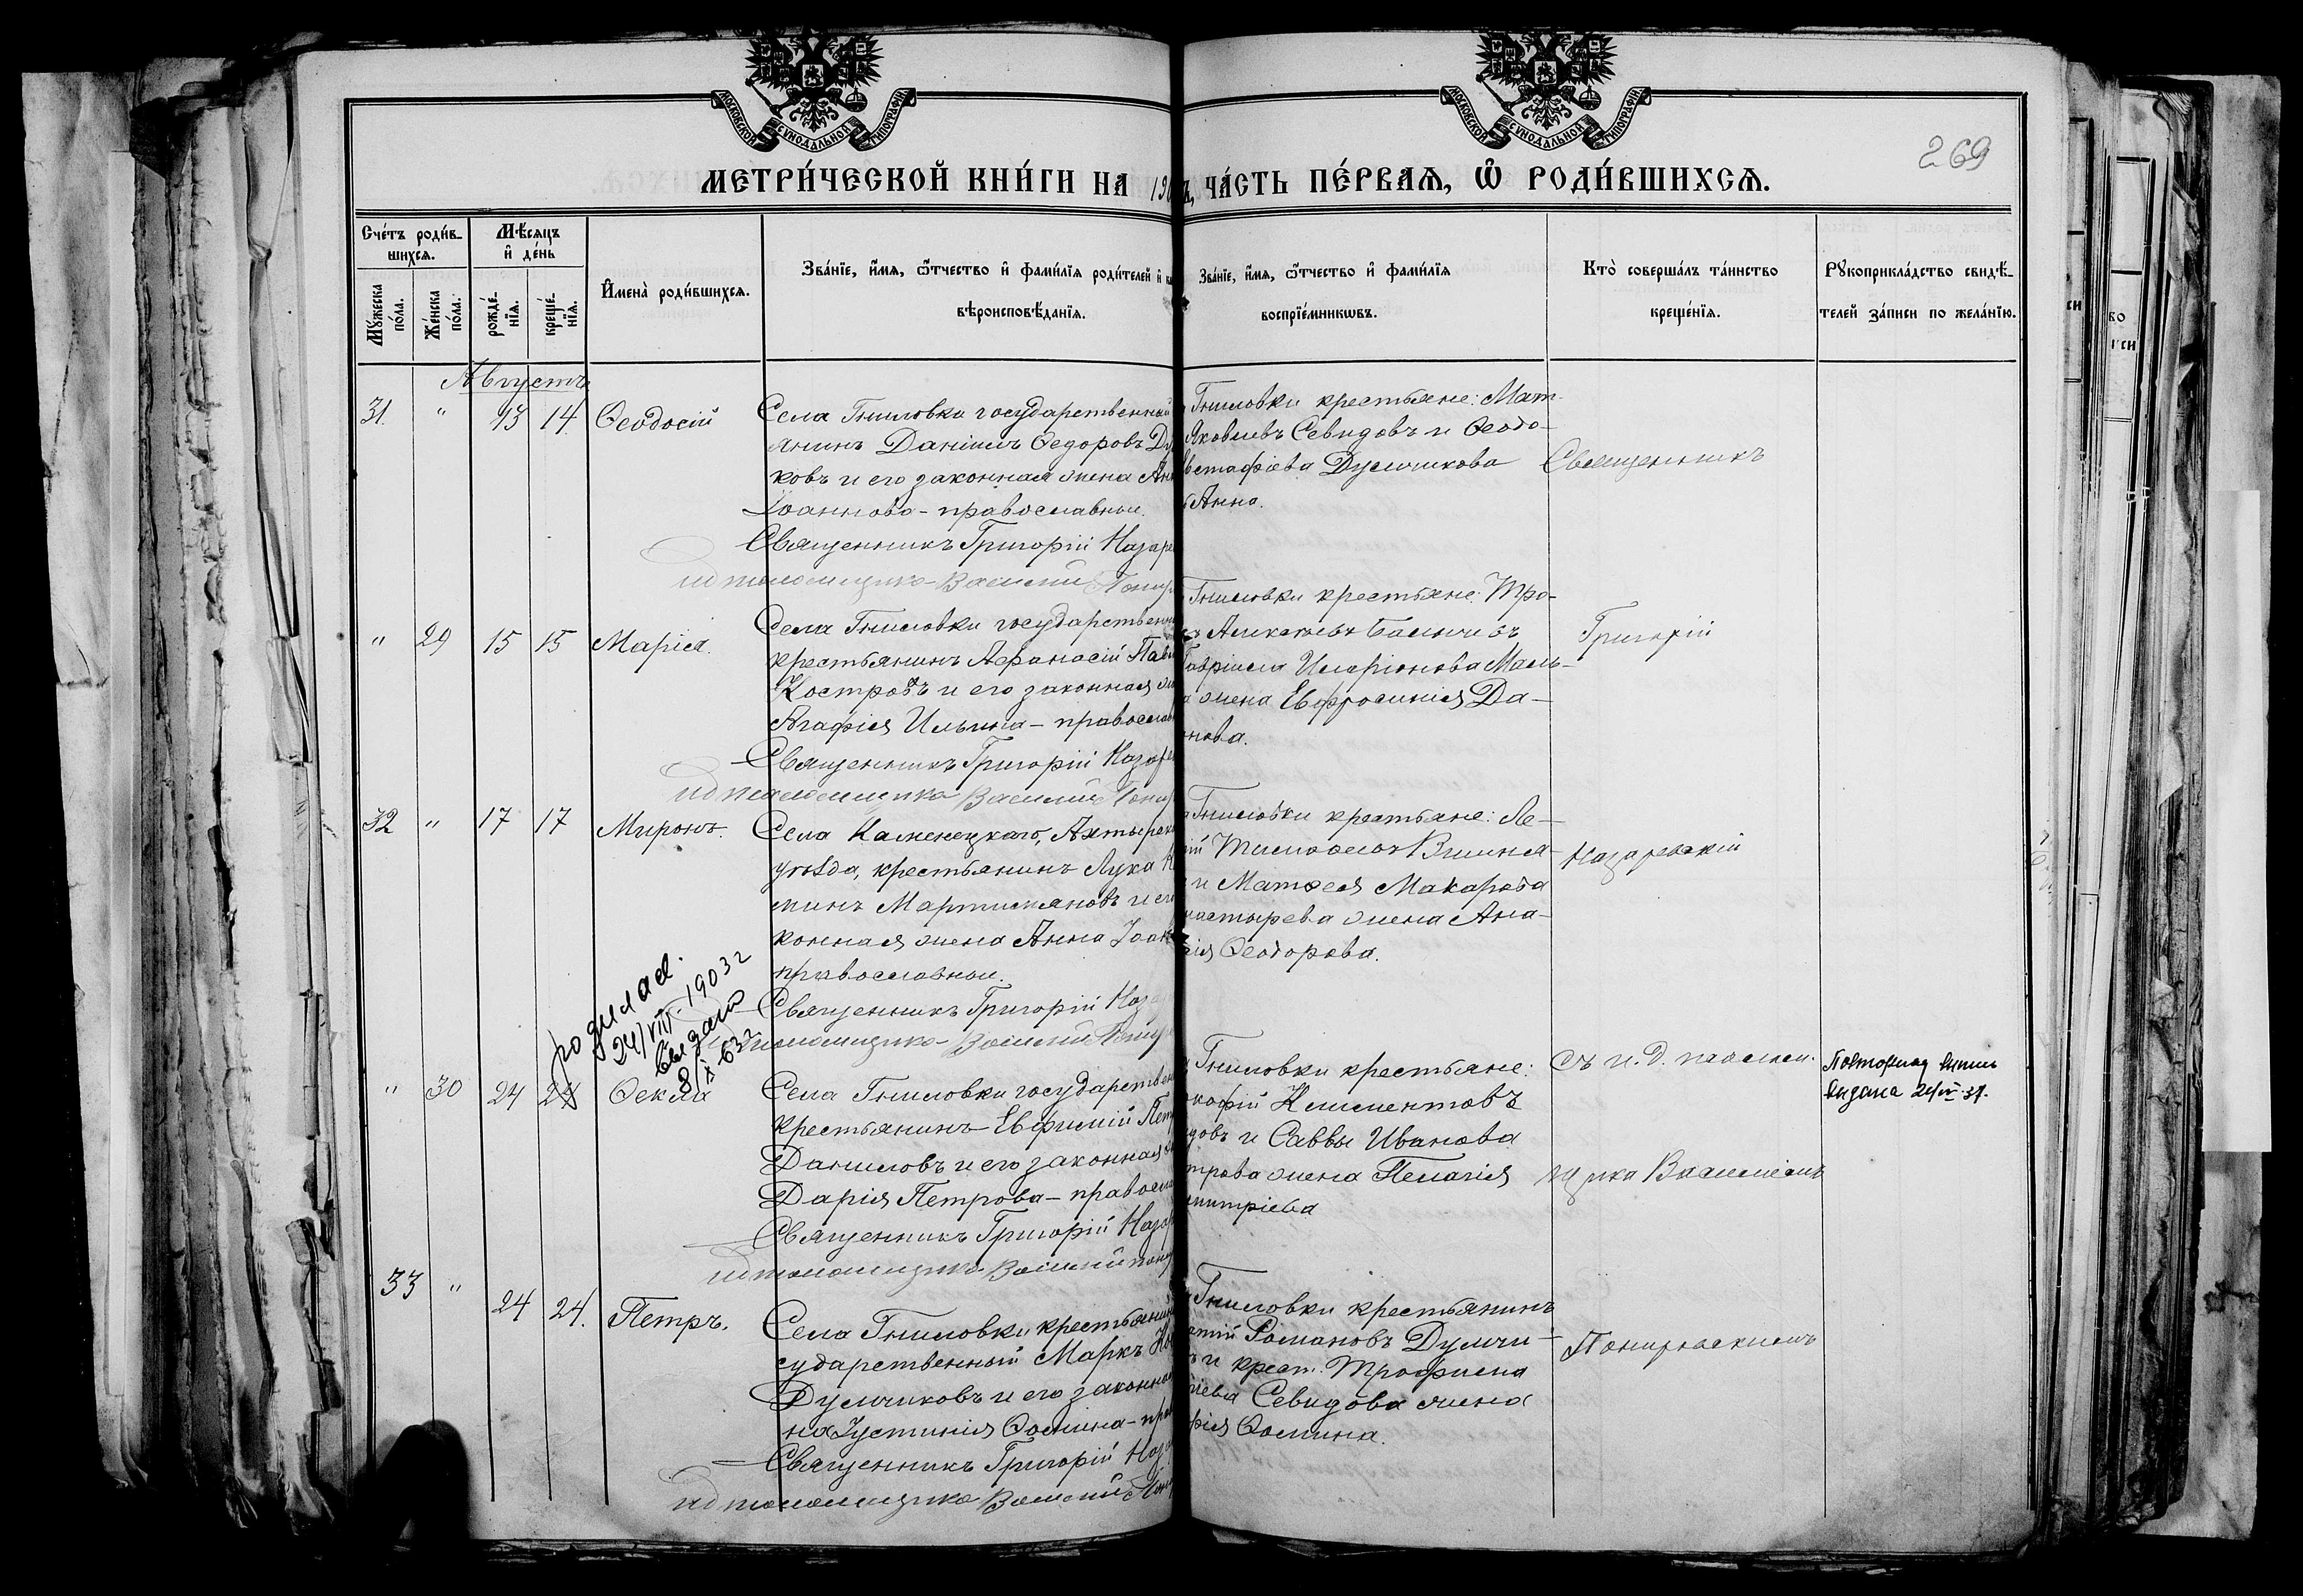 МОСКОВСКОЙ СѴНОДАЛЬНОЙ ТИПОГРАФІИ
МОСКОВСКОЙ СѴНОДАЛЬНОЙ ТИПОГРАФІИ
269
МЕТРИ́ЧЕСКОЙ КНИ́ГИ НА 190
Ъ, ЧА́СТЬ ПЕ́РВАѦ, Ѿ РОДИ́ВШИХСѦ.
Сче́тъ роди́в-
шихсѧ.
Мꙋ́жеска
по́ла.
Же́нска
по́ла.
Мѣ́сѧцъ
и҆ де́нь
рожде́-
нїѧ.
креще́-
нїѧ.
И҆мена̀ роди́вшихсѧ.
Зва́нїе, и҆́мѧ, ѻ҆́тчество и҆ фами́лїѧ роди́телей и҆
вѣроисповѣ́данїѧ.
Зва́нїе, и҆́мѧ, ѻ҆́тчество и҆ фами́лїѧ
воспрїе́мникѡвъ.
Кто̀ соверша́лъ та́инство
креще́нїѧ.
Рꙋкоприкла́дство свидѣ́-
телей за́писи по жела́нїю.
Августъ
31. " 13 14. Ѳеодосій
Села Гниловки государственный
янинъ Даніилъ Ѳедоровъ Ду
ковъ и его законная жена Ан
Іоаннова - православные.
Священникъ Григорій Назаре
ид псаломщика Василий Понир
Гниловки крестьяне: Мат-
Яковлевъ Севидовъ и Ѳеодо-
встафіева Думчикова
Анна.
Священникъ
" 29 15 15 Марія.
Села Гниловки государственн
крестьянинъ Аѳанасій Павл
Костровъ и его законная же
Агафія Ильина - православ
Священникъ Григорій Назаре
ид псаломщика Василий Понир
Гниловки крестьяне: Тро-
Алексѣевъ
Гавріила Иларіонова Маль-
жена Евфросинія Да-
нова.
Григорій
32 " 17 17 Миронъ.
Села Каменецкаго, Ахтырск
уѣзда, крестьянинъ Лука
минъ Мартиміяновъ и его
конная жена Анна Іоак
православные.
Священникъ Григорій Наза
псаломщика Василий Понир
Гниловки крестьяне: Ле-
и Матѳея Макарова
настырева жена Ана-
сія Ѳеодорова.
Назаревскій
родилась
24/VIII. 1903 г
выдано
8/X-63 г
" 30 24 24 Ѳекла
Села Гниловки государствен
крестьянинъ Евфимій Пет
Даниловъ и его законная ж
Дарія Петрова - правосл
Священникъ Григорій Назар
ид псаломщика Василий Понир
Гниловки крестьяне:
кофій Климентовъ
довъ и Саввы Иванова
трова жена Пелагія
митріева
съ и. д. псалом-
щика Василіемъ
Повторная
видана 24/VI-37.
33 " 24 24. Петръ.
Села Гниловки крестьянин
сударственный Маркъ
Думчиковъ и его законная
на Іустинія Ѳомина - прав
Священникъ Григорій Наза
ид псаломщика Василий Пон
Гниловки крестьянинъ
Романовъ Думчи-
и крест. Трофима
ніева Севидова жена
фія Ѳомина.
Понировскимъ